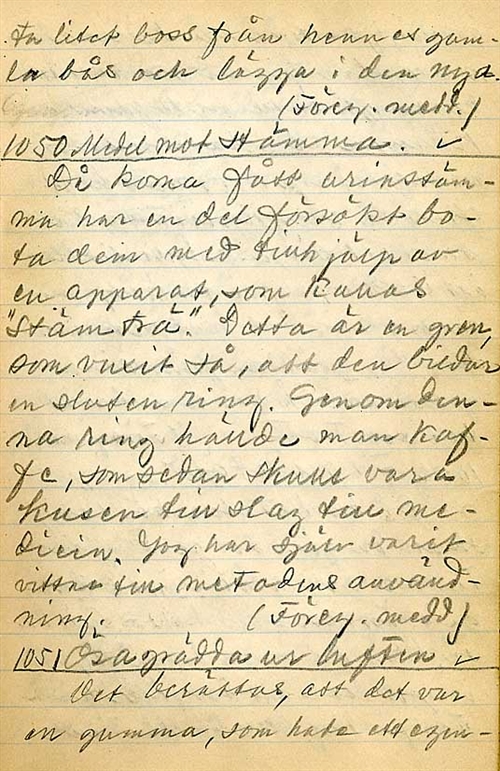 Ta litet boss från hennes gam-
la bås och lägga i den nya.
(Föreg. medd.)
1050 Medel mot stämma. ✓
Då korna fått urinstäm-
ma har en del försökt bo-
ta dem med tillhjälp av
en apparat, som kallas
"stämträ". Detta är en gren,
som vuxit så, att den bildar
en sluten ring. Genom den-
na ring hällde man kaf-
fe, som sedan skulle vara
ett slag till me-
dicin. Jag har själv varit
vittne till metodens använd-
ning. (Föreg. medd)
1051 Ösa grädda ur luften ✓
Det berättas, att det var
en gumma, som hade ett egen-